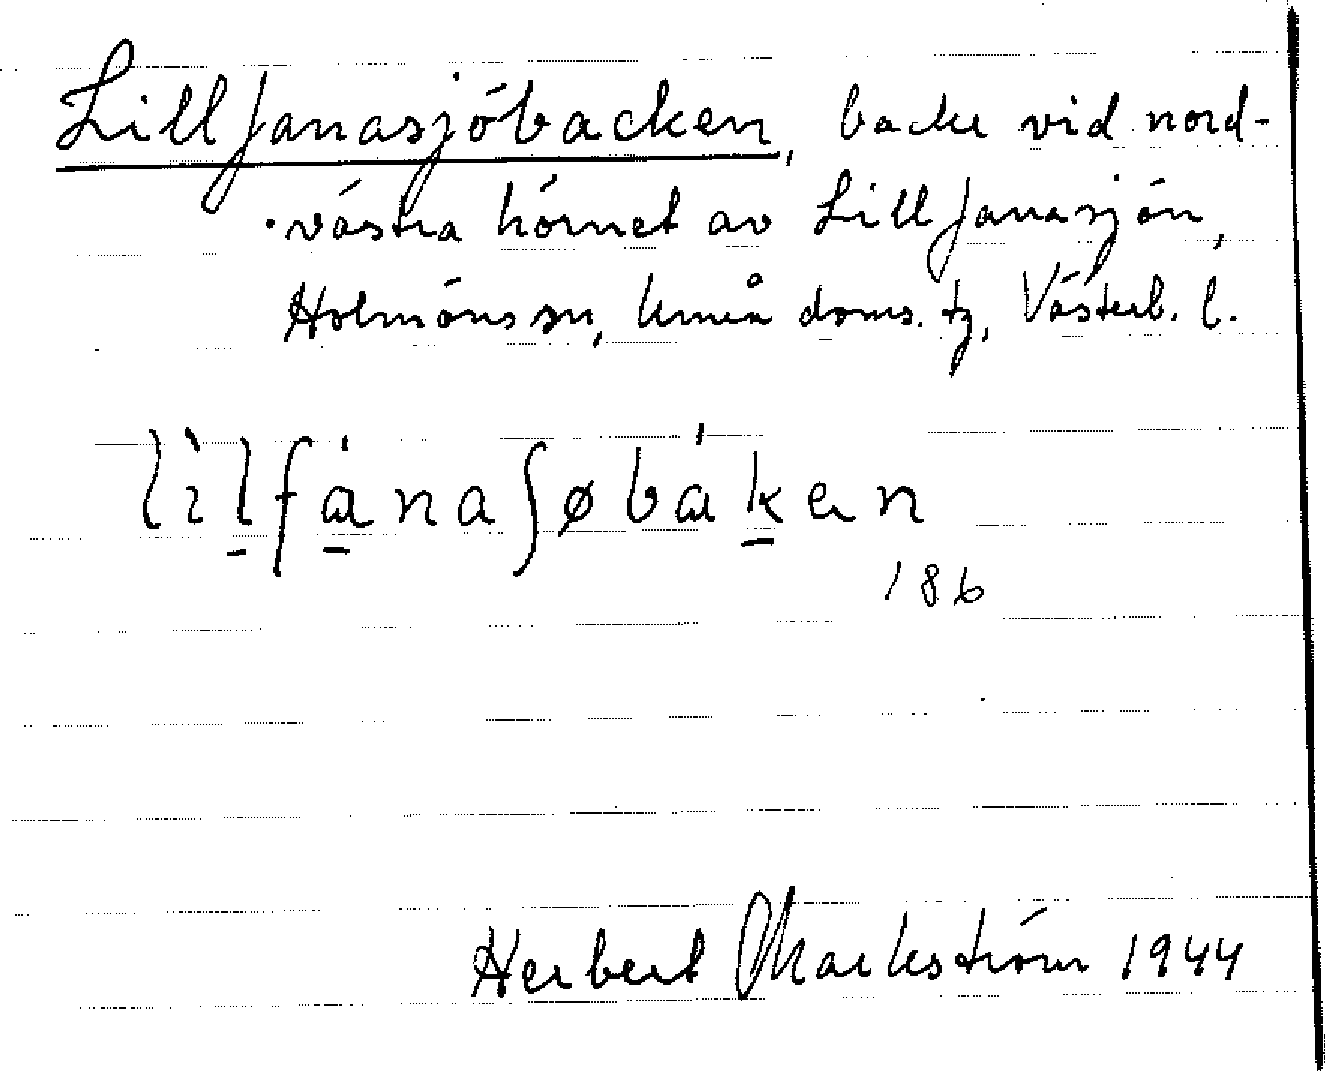 Lill Janasjöbacken, backe vid nord-
västra hörnet av Lill Janasjön,
Holmöns sn, Umeå doms. tg, Västerb. l.
186
Herbert Markström 1944